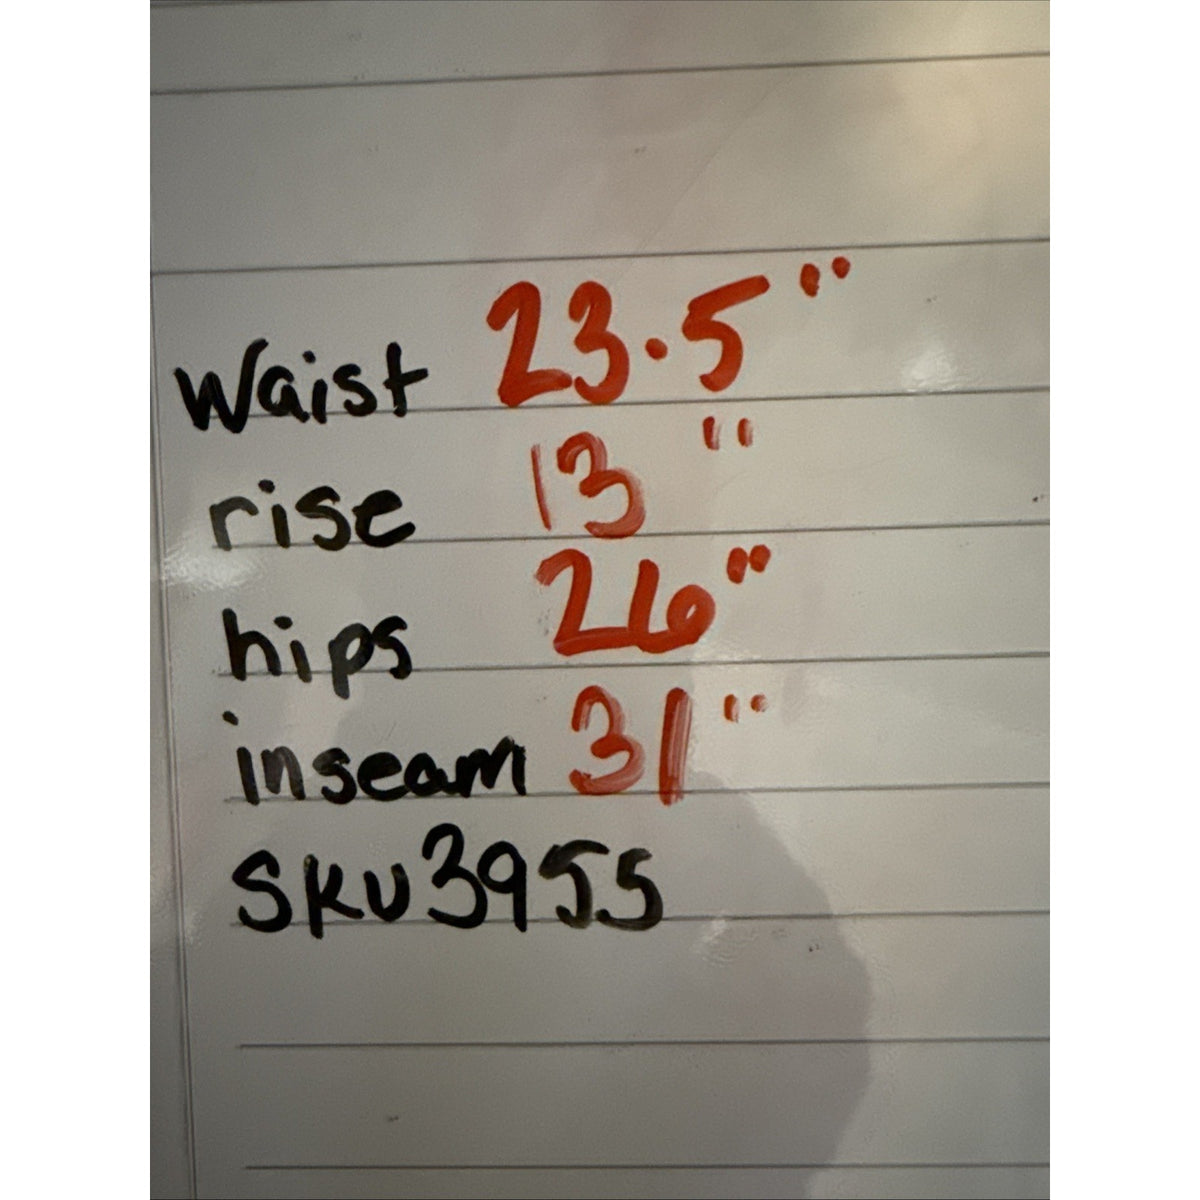 Waist 23.5"
rise 13"
hips 26"
inseam 31"
SKU3955